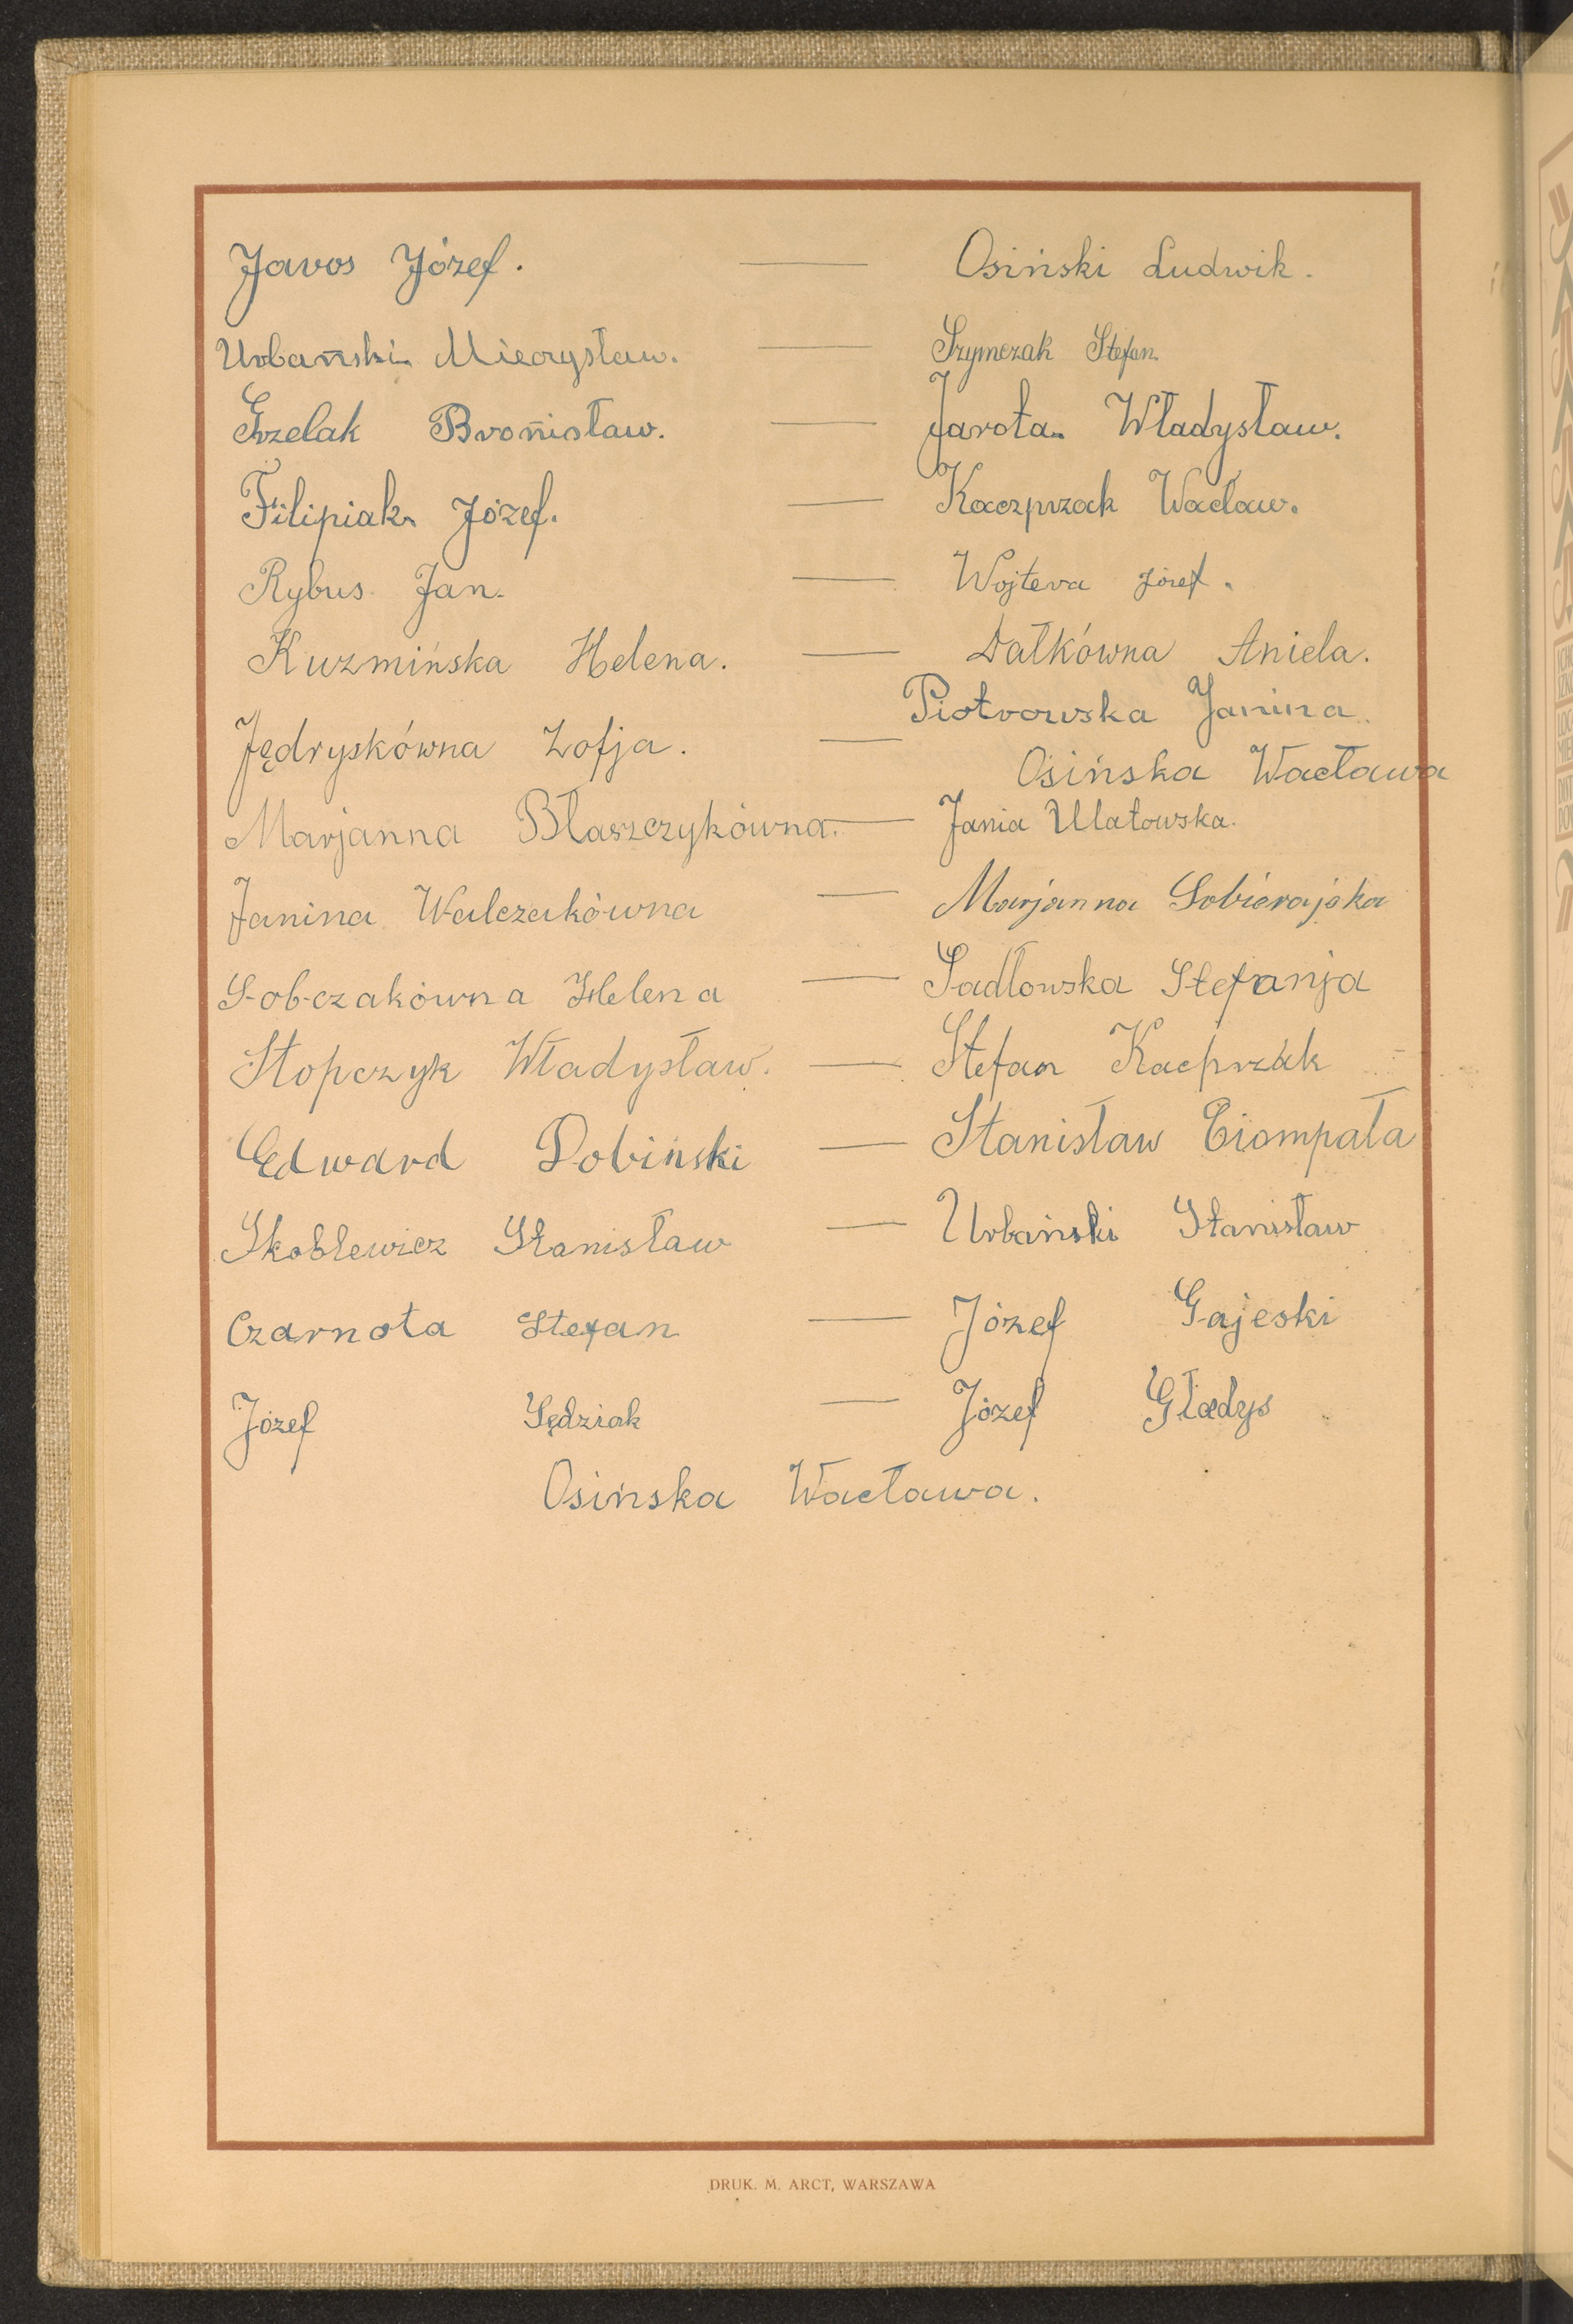 Jaros Józef. — Osiński Ludwik.
Urbański Mieczysław. — Szymczak Stefan.
Grzelak Bronisław. — Jarota Władysław.
Filipiak Józef. — Kaczprzak Wacław.
Rybus Jan. — Wojtera Józef.
Kuzmińska Helena. — Dałkówna Aniela.
Piotrowska Janina.
Jędryskówna Zofja. —
Osińska Wacława
Marjanna Błaszczykówna. — Jania Ulatowska.
Janina Walczakówna — Marjanna Sobierajska
Sobczakówna Helena — Sadłowska Stefanja
Stopczyk Władysław. — Stefan Kacprzak
Edward Dobiński — Stanisław Ciompała
Skoblewicz Stanisław — Urbański Stanisław
Czarnota Stefan — Józef Gajeski
Józef Sędziak — Józef Gładys
Osińska Wacława.
DRUK. M. ARCT, WARSZAWA